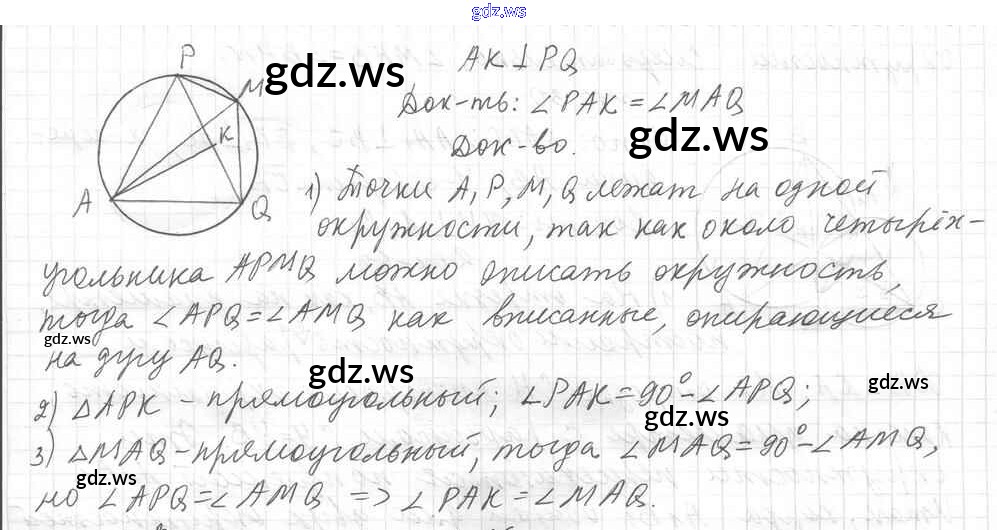 gdz.ws
P
M
K
A
Q
gdz.ws
AK⊥PQ
Док-ть: ∠PAK=∠MAQ
gdz.ws
Док-во.
1) Точки A, P, M, Q лежат на одной
окружности, так как около четырёх-
угольника APMQ можно описать окружность,
тогда ∠APQ=∠AMQ как вписанные, опирающиеся
gdz.ws
на дугу AQ.
gdz.ws
gdz.ws
2) △APK - прямоугольный; ∠PAK=90°-∠APQ;
gdz.ws
3) △MAQ-прямоугольный, тогда ∠MAQ=90°-∠AMQ,
gdz.ws
но ∠APQ=∠AMQ => ∠PAK=∠MAQ.